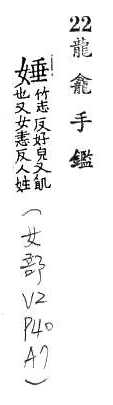 22龍龕手鑑
娷竹志反好皃又飢
也又女恚反人姓
(女部
V2
P40
A7)